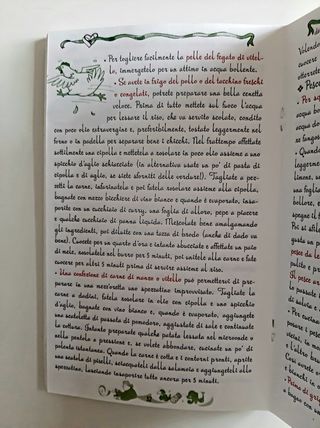 • Per togliere facilmente la pelle del fegato di vitel-
lo, immergetelo per un attimo in acqua bollente.
• Se avete in frigo del pollo o del tacchino freschi
o congelati, potrete preparare una bella cenetta
veloce. Prima di tutto mettete sul fuoco l'acqua
per lessare il riso, che va servito scolato, condito
con poco olio extravergine e, preferibilmente, tostato leggermente nel
forno o in padella per separare bene i chicchi. Nel frattempo affettate
sottilmente una cipolla e mettetela a rosolare in poco olio assieme a uno
spicchio d'aglio schiacciato (in alternativa usate un po' di pasta di
cipolla e di aglio, se siete sforniti delle verdure!). Tagliate a pez-
zetti la carne, infarinatela e poi fatela rosolare assieme alla cipolla,
bagnate con mezzo bicchiere di vino bianco e quando è evaporato, insa-
porite con un cucchiaio di curry, una foglia di alloro, pepe a piacere
e qualche cucchiaio di panna liquida. Mescolate bene amalgamando
gli ingredienti, poi diluite con una tazza di brodo (anche di dado va
bene). Cuocete per un quarto d'ora e intanto sbucciate e affettate un paio
di mele, rosolatele nel burro per 5 minuti, poi unitele alla carne e fate
cuocere per altri 5 minuti prima di servire assieme al riso.
• Una confezione di carne di manzo o vitello può permettervi di pre-
parare in una mezz'oretta uno spezzatino improvvisato. Tagliate la
carne a dadini, fatela rosolare in olio con cipolla e uno spicchio
d'aglio, bagnate con vino bianco e, quando è evaporato, aggiungete
una scatoletta di passata di pomodoro, aggiustate di sale e continuate
la cottura. Intanto preparate qualche patata lessata nel microonde o
nella pentola a pressione e, se volete abbondare, cucinate un po' di
polenta istantanea. Quando la carne è cotta e i contorni pronti, aprite
una scatola di piselli, sciacquateli dalla salamoia e aggiungeteli allo
spezzatino, lasciando insaporire tutto ancora per 5 minuti.